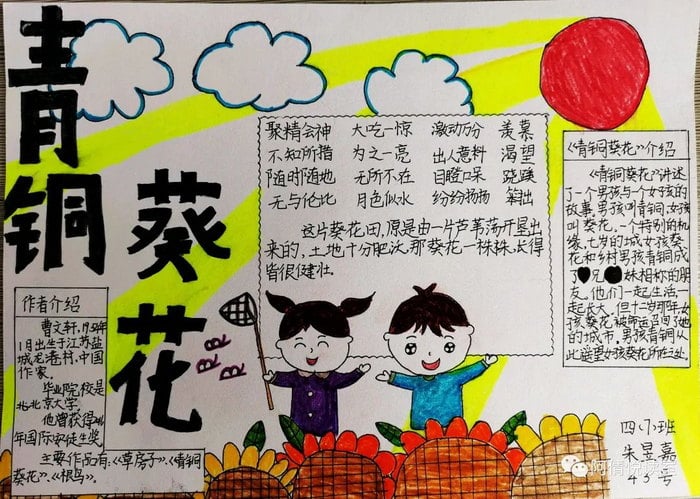 青铜
葵花
聚精会神 大吃一惊 激动万分 羡慕
不知所措 为之一亮 出人意料 渴望
随时随地 无所不在 目瞪口呆
无与伦比 月色似水 纷纷扬扬
这片葵花田,原是由一片芦苇荡开垦出
来的,土地十分肥沃,那葵花一株株,长得
皆很健壮。
《青铜葵花》介绍
《青铜葵花》讲述
了一个男孩与女孩的
故事,男孩叫青铜,女孩
叫葵花。一个特别的机
缘,七岁的城女孩葵
花和乡村男孩青铜成
了兄妹相称的朋
友,他们一起生活一
起长大。但十二岁那年,女
孩葵花被命运召回了她
的城市,男孩青铜从
此遥望女孩葵花所在之处
作者介绍
曹文轩,1954年
1日出生于江苏盐
城龙港村,中国
作家。
毕业院校是
北北京大学
他曾获得
年国际安徒生奖,
主要作品有:《草房子》、《青铜
葵花》、《根鸟》。
四(1)班
朱昱嘉
43号